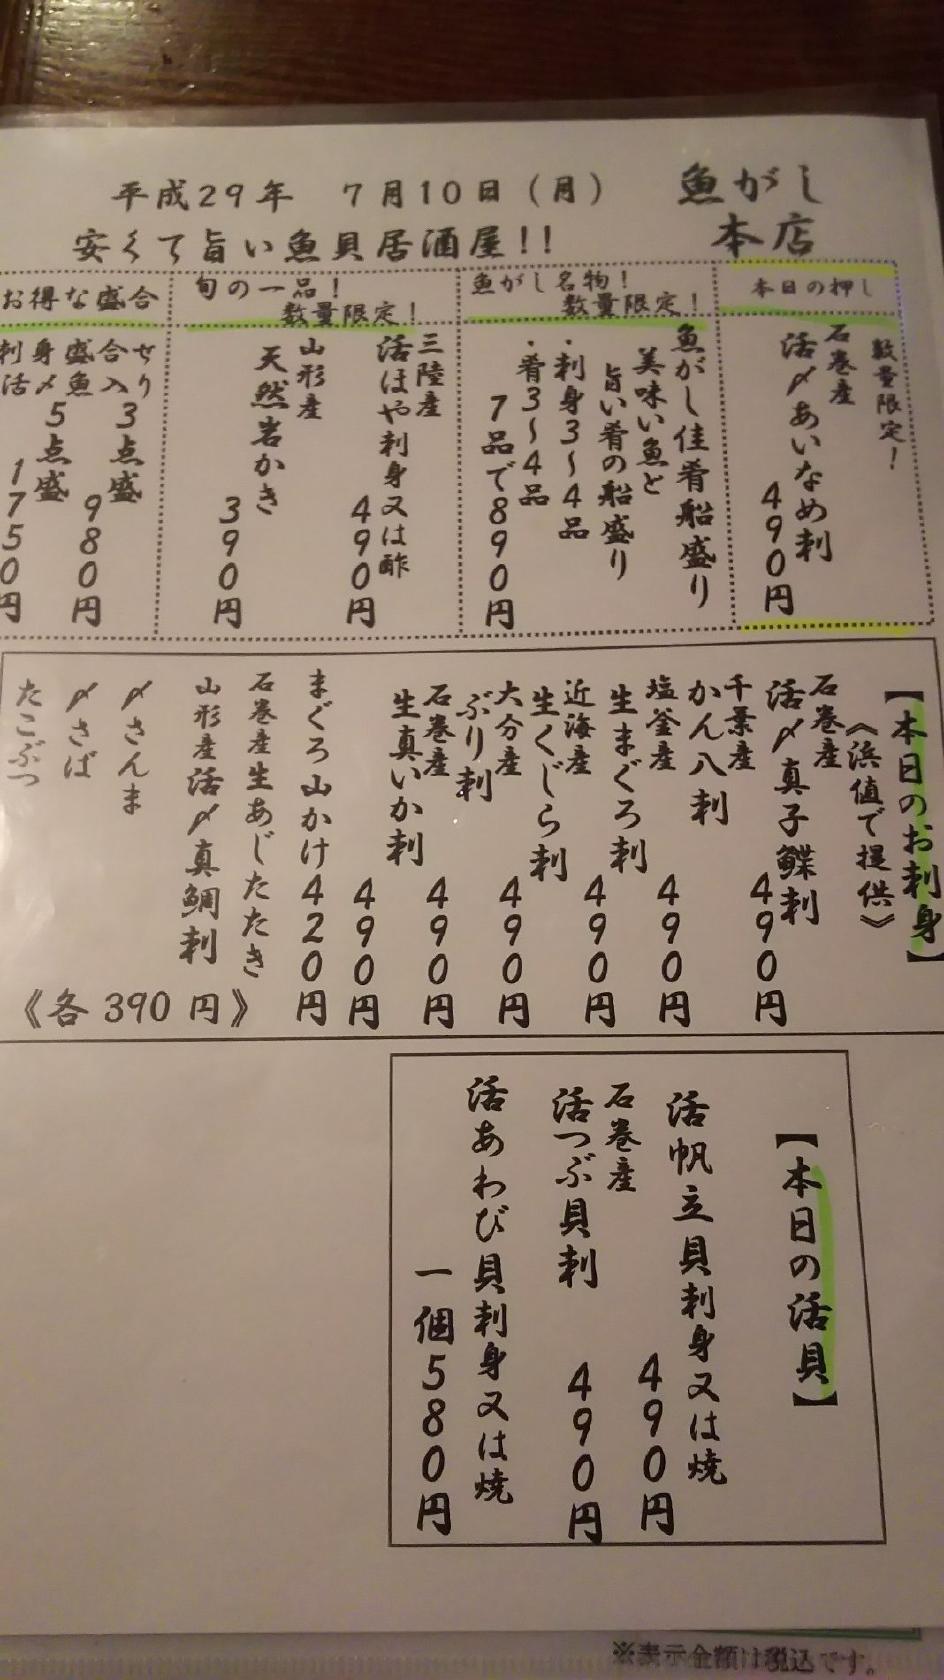 平成29年 7月10日(月) 魚がし
本店
安くて旨い魚貝居酒屋!!
本日の押し
数量限定!
石巻産
活〆あいなめ刺
490円
魚がし名物!
数量限定!
魚がし佳肴船盛り
美味い魚と
旨い肴の船盛り
・刺身3~4品
・肴3~4品
7品で890円
旬の一品!
数量限定!
三陸産
活ほや刺身又は酢
490円
山形産
天然岩かき
390円
お得な盛合せ
盛り合
3点盛
980円
刺身
活〆魚入り
5点盛
1750円
【本日のお刺身】
《浜値で提供》
石巻産
活〆真子鰈刺
490円
千葉産
かん八刺
490円
塩釜産
生まぐろ刺
490円
近海産
生くじら刺
490円
大分産
ぶり刺
490円
石巻産
生真いか刺
490円
まぐろ山かけ420円
石巻産生あじたたき
山形産活〆真鯛刺
〆さんま
〆さば
たこぶつ
《各390円》
【本日の活貝】
活帆立貝刺身又は焼
490円
石巻産
活つぶ貝刺
490円
活あわび貝刺身又は焼
一個580円
※表示金額は税込です。